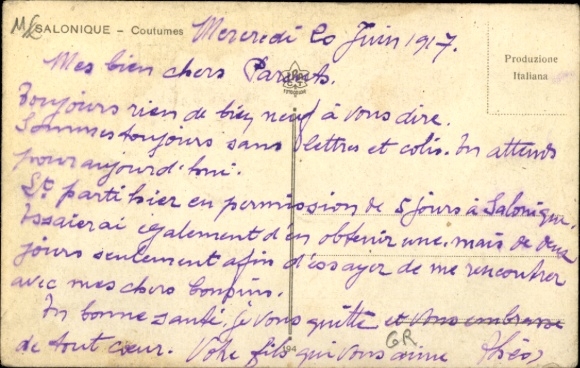 SALONIQUE – Coutumes
Mercredi 20 Juin 1917.
Produzione
Italiana
Mes bien chers Parents.
Toujours rien de bien neuf à vous dire.
Sommes toujours sans lettres et colis. En attends
pour aujourd'hui.
parti hier en permission de 5 jours à Salonique.
Essaierai également d'en obtenir une, mais de deux
jours seulement afin d'essayer de me rencontrer
avec mes chers Cousins.
En bonne santé, je vous quitte et vous embrasse
GR
de tout cœur. Votre fils qui vous aime
194